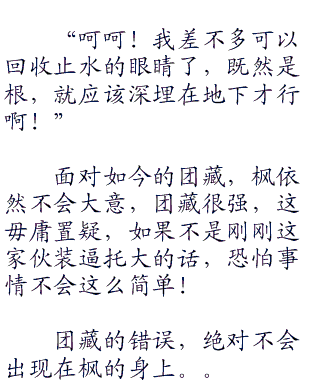 “呵呵！我差不多可以
回收止水的眼睛了，既然是
根，就应该深埋在地下才行
啊！”
面对如今的团藏，枫依
然不会大意，团藏很强，这
毋庸置疑，如果不是刚刚这
家伙装逼托大的话，恐怕事
情不会这么简单！
团藏的错误，绝对不会
出现在枫的身上。。